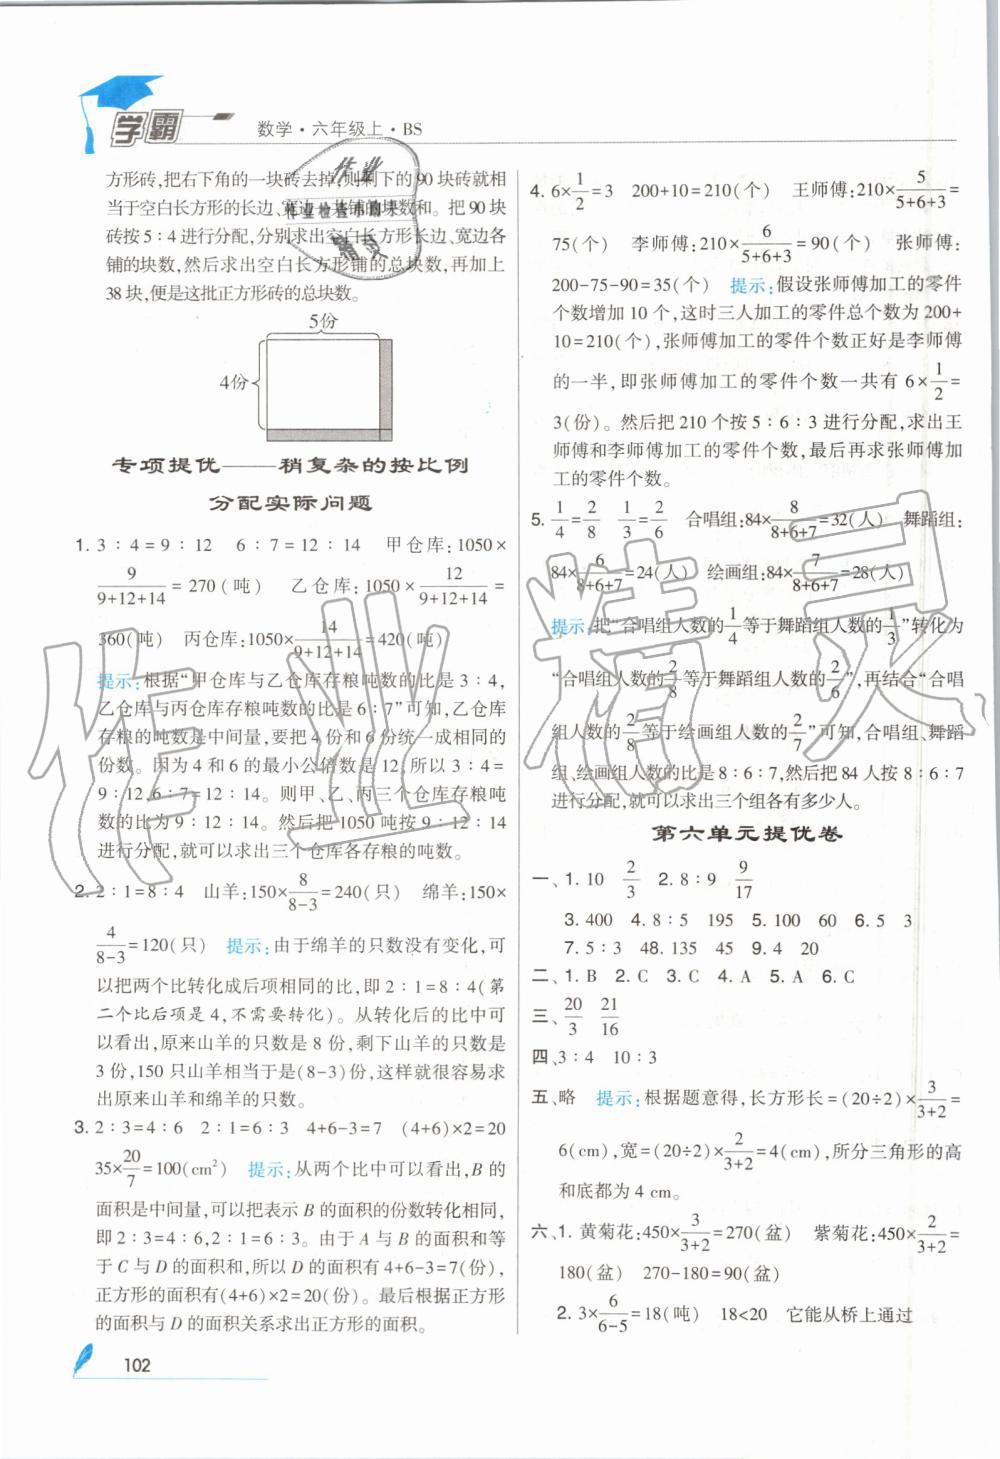 学霸
数学·六年级上·BS
方形砖,把右下角的一块砖去掉,则剩下的90块砖就相
当于空白长方形的长边、宽边一共铺的块数和。把90块
砖按5∶4进行分配,分别求出空白长方形长边、宽边各
铺的块数,然后求出空白长方形铺的总块数,再加上
38块,便是这批正方形砖的总块数。
5份
4份
专项提优——稍复杂的按比例
分配实际问题
1. 3∶4=9∶12 6∶7=12∶14 甲仓库:1050×
9/(9+12+14)=270(吨) 乙仓库:1050×12/(9+12+14)=
360(吨) 丙仓库:1050×14/(9+12+14)=420(吨)
提示:根据“甲仓库与乙仓库存粮吨数的比是3∶4,
乙仓库与丙仓库存粮吨数的比是6∶7”可知,乙仓库
存粮的吨数是中间量,要把4份和6份统一成相同的
份数。因为4和6的最小公倍数是12,所以3∶4=
9∶12,6∶7=12∶14。则甲、乙、丙三个仓库存粮吨
数的比为9∶12∶14。然后把1050吨按9∶12∶14
进行分配,就可以求出三个仓库各存粮的吨数。
2. 2∶1=8∶4 山羊:150×8/(8-3)=240(只) 绵羊:150×
4/(8-3)=120(只) 提示:由于绵羊的只数没有变化,可
以把两个比转化成后项相同的比,即2∶1=8∶4(第
二个比后项是4,不需要转化)。从转化后的比中可
以看出,原来山羊的只数是8份,剩下山羊的只数是
3份,150只山羊相当于是(8-3)份,这样就很容易求
出原来山羊和绵羊的只数。
3. 2∶3=4∶6 2∶1=6∶3 4+6-3=7 (4+6)×2=20
35×20/7=100(cm²) 提示:从两个比中可以看出,B的
面积是中间量,可以把表示B的面积的份数转化相同,
即2∶3=4∶6,2∶1=6∶3。由于A与B的面积和等
于C与D的面积和,所以D的面积有4+6-3=7(份),
正方形的面积有(4+6)×2=20(份)。最后根据正方形
的面积与D的面积关系求出正方形的面积。
102
4. 6×1/2=3 200+10=210(个) 王师傅:210×5/(5+6+3)=
75(个) 李师傅:210×6/(5+6+3)=90(个) 张师傅:
200-75-90=35(个) 提示:假设张师傅加工的零件
个数增加10个,这时三人加工的零件总个数为200+
10=210(个),张师傅加工的零件个数正好是李师傅
的一半,即张师傅加工的零件个数一共有6×1/2=
3(份)。然后把210个按5∶6∶3进行分配,求出王
师傅和李师傅加工的零件个数,最后再求张师傅加工
的零件个数。
5. 1/4=2/8 1/3=2/6 合唱组:84×8/(8+6+7)=32(人) 舞蹈组:
84×6/(8+6+7)=24(人) 绘画组:84×7/(8+6+7)=28(人)
提示:把“合唱组人数的1/4等于舞蹈组人数的1/3”转化为
“合唱组人数的2/8等于舞蹈组人数的2/6”,再结合“合唱
组人数的2/8等于绘画组人数的2/7”可知,合唱组、舞蹈
组、绘画组人数的比是8∶6∶7,然后把84人按8∶6∶7
进行分配,就可以求出三个组各有多少人。
第六单元提优卷
一、1. 10 2/3 2. 8∶9 9/17
3. 400 4. 8∶5 195 5. 100 60 6. 5 3
7. 5∶3 48. 135 45 9. 4 20
二、1. B 2. C 3. C 4. A 5. A 6. C
三、20/3 21/16
四、3∶4 10∶3
五、略 提示:根据题意得,长方形长=(20÷2)×3/(3+2)=
6(cm),宽=(20÷2)×2/(3+2)=4(cm),所分三角形的高
和底都为4 cm。
六、1. 黄菊花:450×3/(3+2)=270(盆) 紫菊花:450×2/(3+2)=
180(盆) 270-180=90(盆)
2. 3×6/(6-5)=18(吨) 18<20 它能从桥上通过
作业精灵